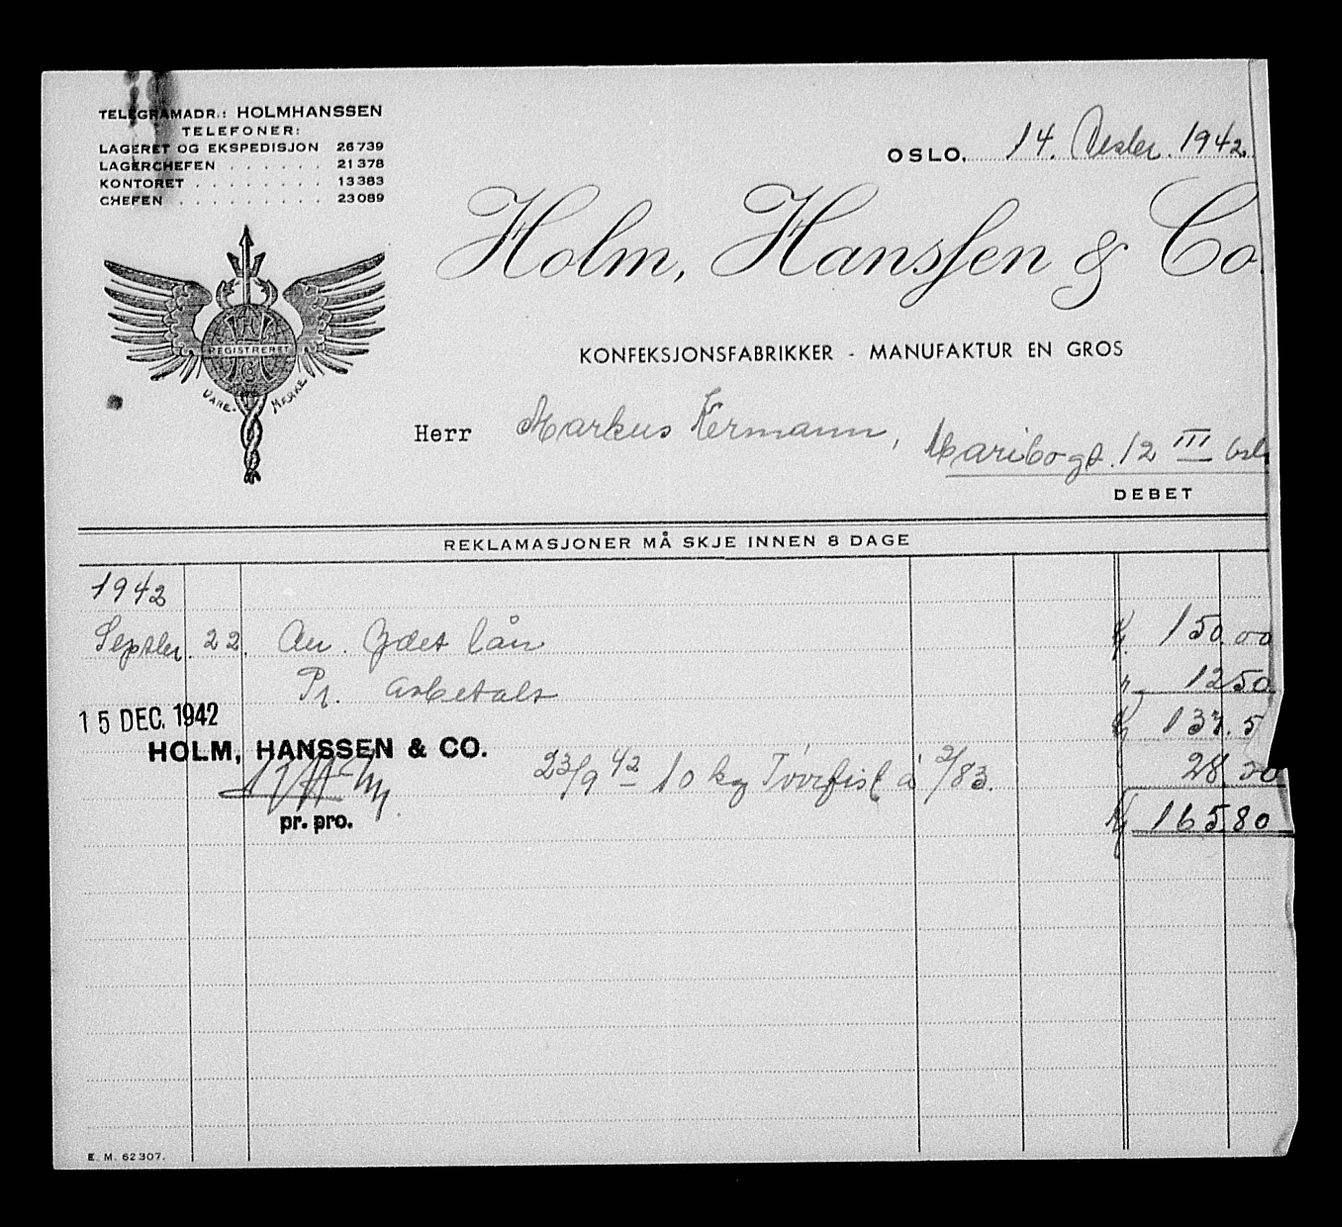 TELEGRAMADR.: HOLMHANSSEN
TELEFONER:
LAGERET OG EKSPEDISJON 26739
LAGERCHEFEN . . . . . . 21378
KONTORET . . . . . . . . 13383
CHEFEN . . . . . . . . . 23089
OSLO, 14. Desbr. 1942.
Holm, Hanssen & Co.
REGISTRERET
VARE- MERKE
KONFEKSJONSFABRIKKER - MANUFAKTUR EN GROS
Herr Markus Kermann, Maribogt. 12 III Osl
DEBET
REKLAMASJONER MÅ SKJE INNEN 8 DAGE
1942
Septbr. 22. An. Ydet lån Kr. 150.00
Pr. avbetalt " 12 50
15 DEC. 1942 Kr 137.5
HOLM, HANSSEN & CO.
23/9 42 10 kg Törrfisk à 2/83. 28
pr. pro.
Kr 165.80
E. M. 62307.